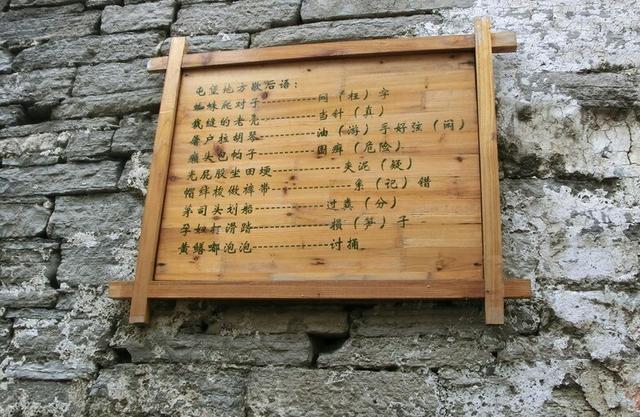 屯堡地方歇后语:
蜘蛛爬对子----------网(枉)字
裁缝的老壳----------当针(真)
屠户拉胡琴----------油(游)手好弦(闲)
癞头包帕子----------围癣(危险)
光屁股坐田埂----------夹泥(疑)
帽绊梭做裤带----------系(记)错
茅司头划船----------过粪(分)
孕妇打滑踏----------损(笋)子
黄鳝嘟泡泡----------讨捅